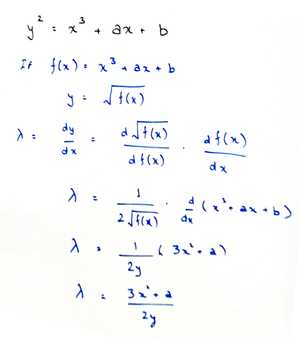 y² = x³ + ax + b
If f(x) = x³ + ax + b
y = √f(x)
λ = dy/dx = d√f(x)/df(x) · df(x)/dx
λ = 1/2√f(x) · d/dx (x³ + ax + b)
λ = 1/2y (3x² + a)
λ = 3x² + a/2y